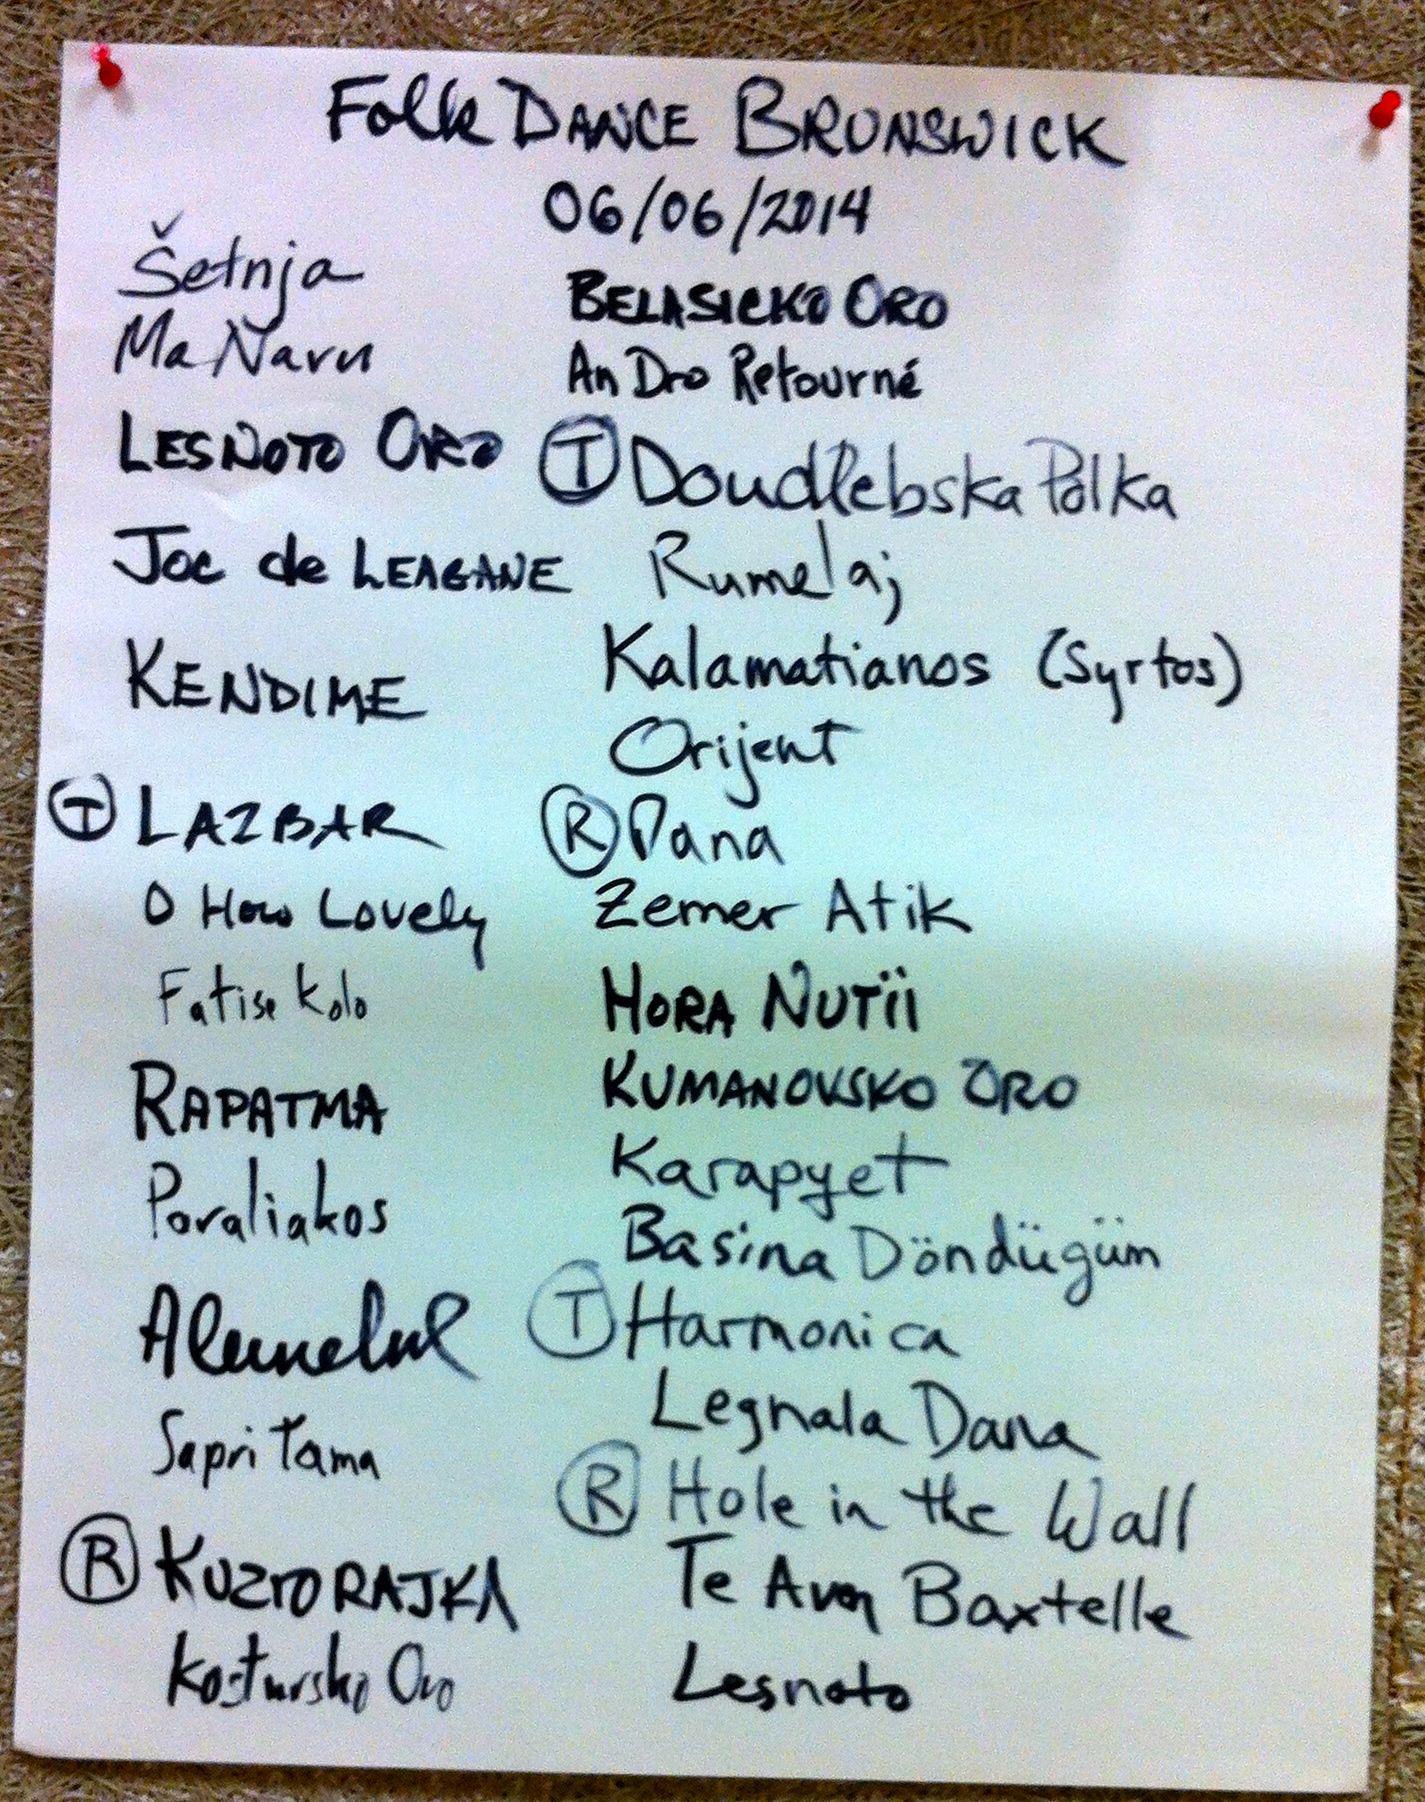 Folk DANCE BRUNSWICK
06/06/2014
Šetnja
Ma Navu
LESNOTO ORO
Joc de LEAGANE
KENDIME
Ⓣ LAZBAR
O How Lovely
Fatise Kolo
RAPATMA
Paraliakos
Alunelul
Sapri Tama
Ⓡ KUZTORAJKA
Kostursko Oro
BELASICKO ORO
An Dro Retourné
Ⓣ Doudlebska Polka
Rumelaj
Kalamatianos (Syrtos)
Orijent
Ⓡ Pana
Zemer Atik
HORA NUTÏI
KUMANOVSKO ORO
Karapyet
Basina Döndügüm
Ⓣ Harmonica
Legnala Dana
Ⓡ Hole in the Wall
Te Aven Baxtelle
Lesnoto